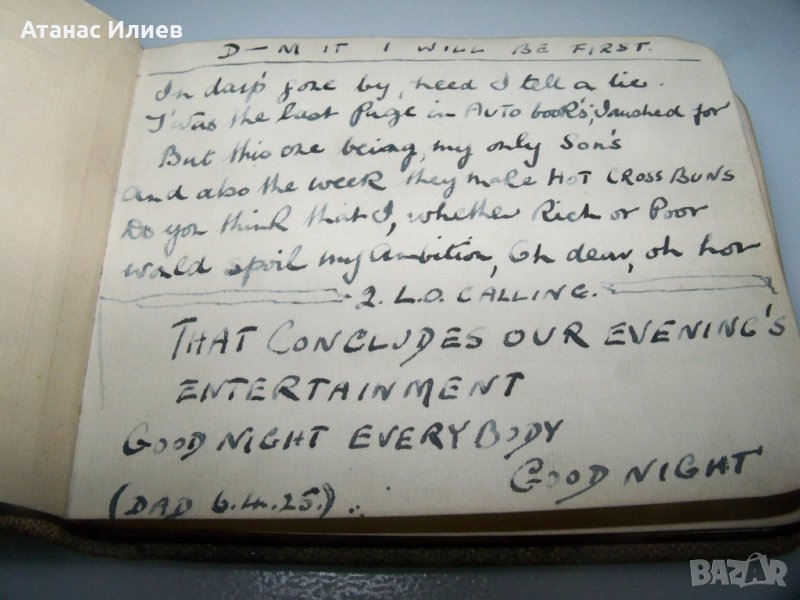 Атанас Илиев
D—M IT I WILL BE FIRST.
In days gone by, need I tell a lie.
T'was the last Page in AUTO book's, I rushed for
But this one being, my only Son's
and also the week they make HOT CROSS BUNS
Do you think that I, whether Rich or Poor
would spoil my Ambition, Oh dear, oh nor
2. L.O. CALLING.
THAT CONCLUDES OUR EVENING'S
ENTERTAINMENT
GOOD NIGHT EVERYBODY
GOOD NIGHT
(DAD 6.4.25.)
BAZAR